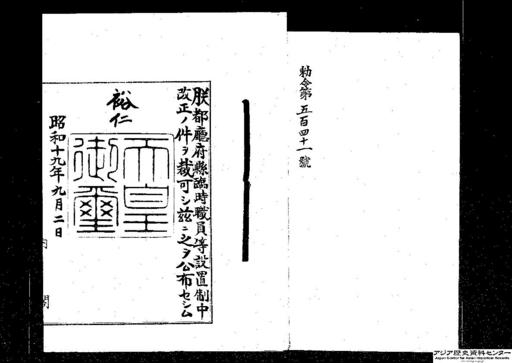 勅令第五百四十一號
朕都廳府縣臨時職員等設置制中
改正ノ件ヲ裁可シ茲ニ之ヲ公布セシム
裕仁
天皇
御璽
昭和十九年九月二日
内閣
アジア歴史資料センター
Japan Center for Asian Historical Records